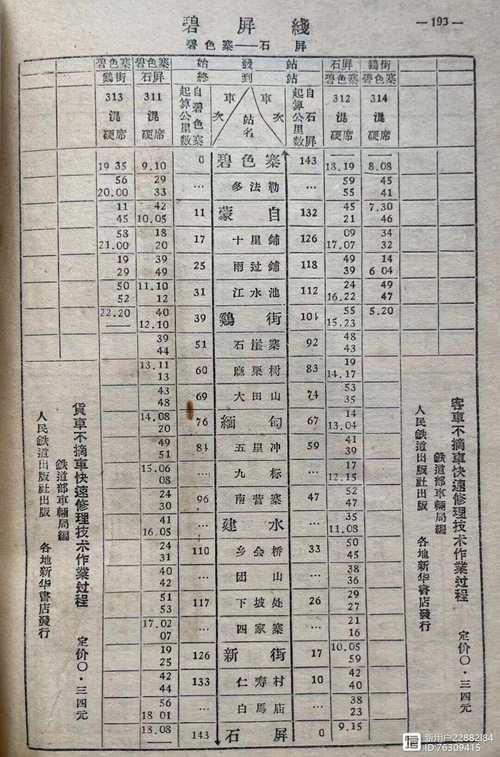 碧屏綫
— 193 —
碧色寨——石屏
碧色寨 碧色寨 始發站 石屏 鷄街
鷄街 石屏 終到站 碧色寨 碧色寨
313 混 硬席 311 混 硬席 自碧色寨起算公里数 車次 站名 車次 自石屏起算公里数 312 混 硬席 314 混 硬席
19 35 9.10 0 碧色寨 143 18.19 8.08
56 29 … 多法勒 … 59 45
20.00 33 55 41
11 42 11 蒙自 132 45 7.30
45 10.05 21 46
58 18 17 十里鋪 126 09 34
21.00 20 17.07 32
19 39 25 雨过鋪 118 49 14
29 49 39 6 04
50 11.10 31 江水池 112 24 49
52 12 16.22 47
22.20 40 39 鷄街 104 55 5.20
12.10 15.23
39 51 石崖寨 92 48
44 43
13.11 60 鷹栗樹 83 19
13 14.17
43 69 大田山 74 53
48 35
14.08 76 緬甸 67 14
20 13.04
49 84 五里冲 59 41
51 39
15.06 … 九标 … 17
08 12.15
24 96 南营寨 47 52
30 47
41 … 建水 … 35
16.05 11.08
24 110 乡会桥 33 50
31 45
40 … 团山 … 38
42 36
51 117 下坡处 26 29
53 27
17.02 … 四家寨 … 21
07 16
19 126 新街 17 10.05
25 59
42 133 仁寿村 10 42
44 40
56 … 白馬庙 … 38
18 01 23
18.08 143 石屏 0 9.15
客車不摘車快速修理技术作業过程
鉄道部車輛局編
人民鉄道出版社出版 各地新华書店發行
定价〇·三四元
貨車不摘車快速修理技术作業过程
鉄道部車輛局編
人民鉄道出版社出版 各地新华書店發行
定价〇·三四元
新用户22882l34
ID:76309415